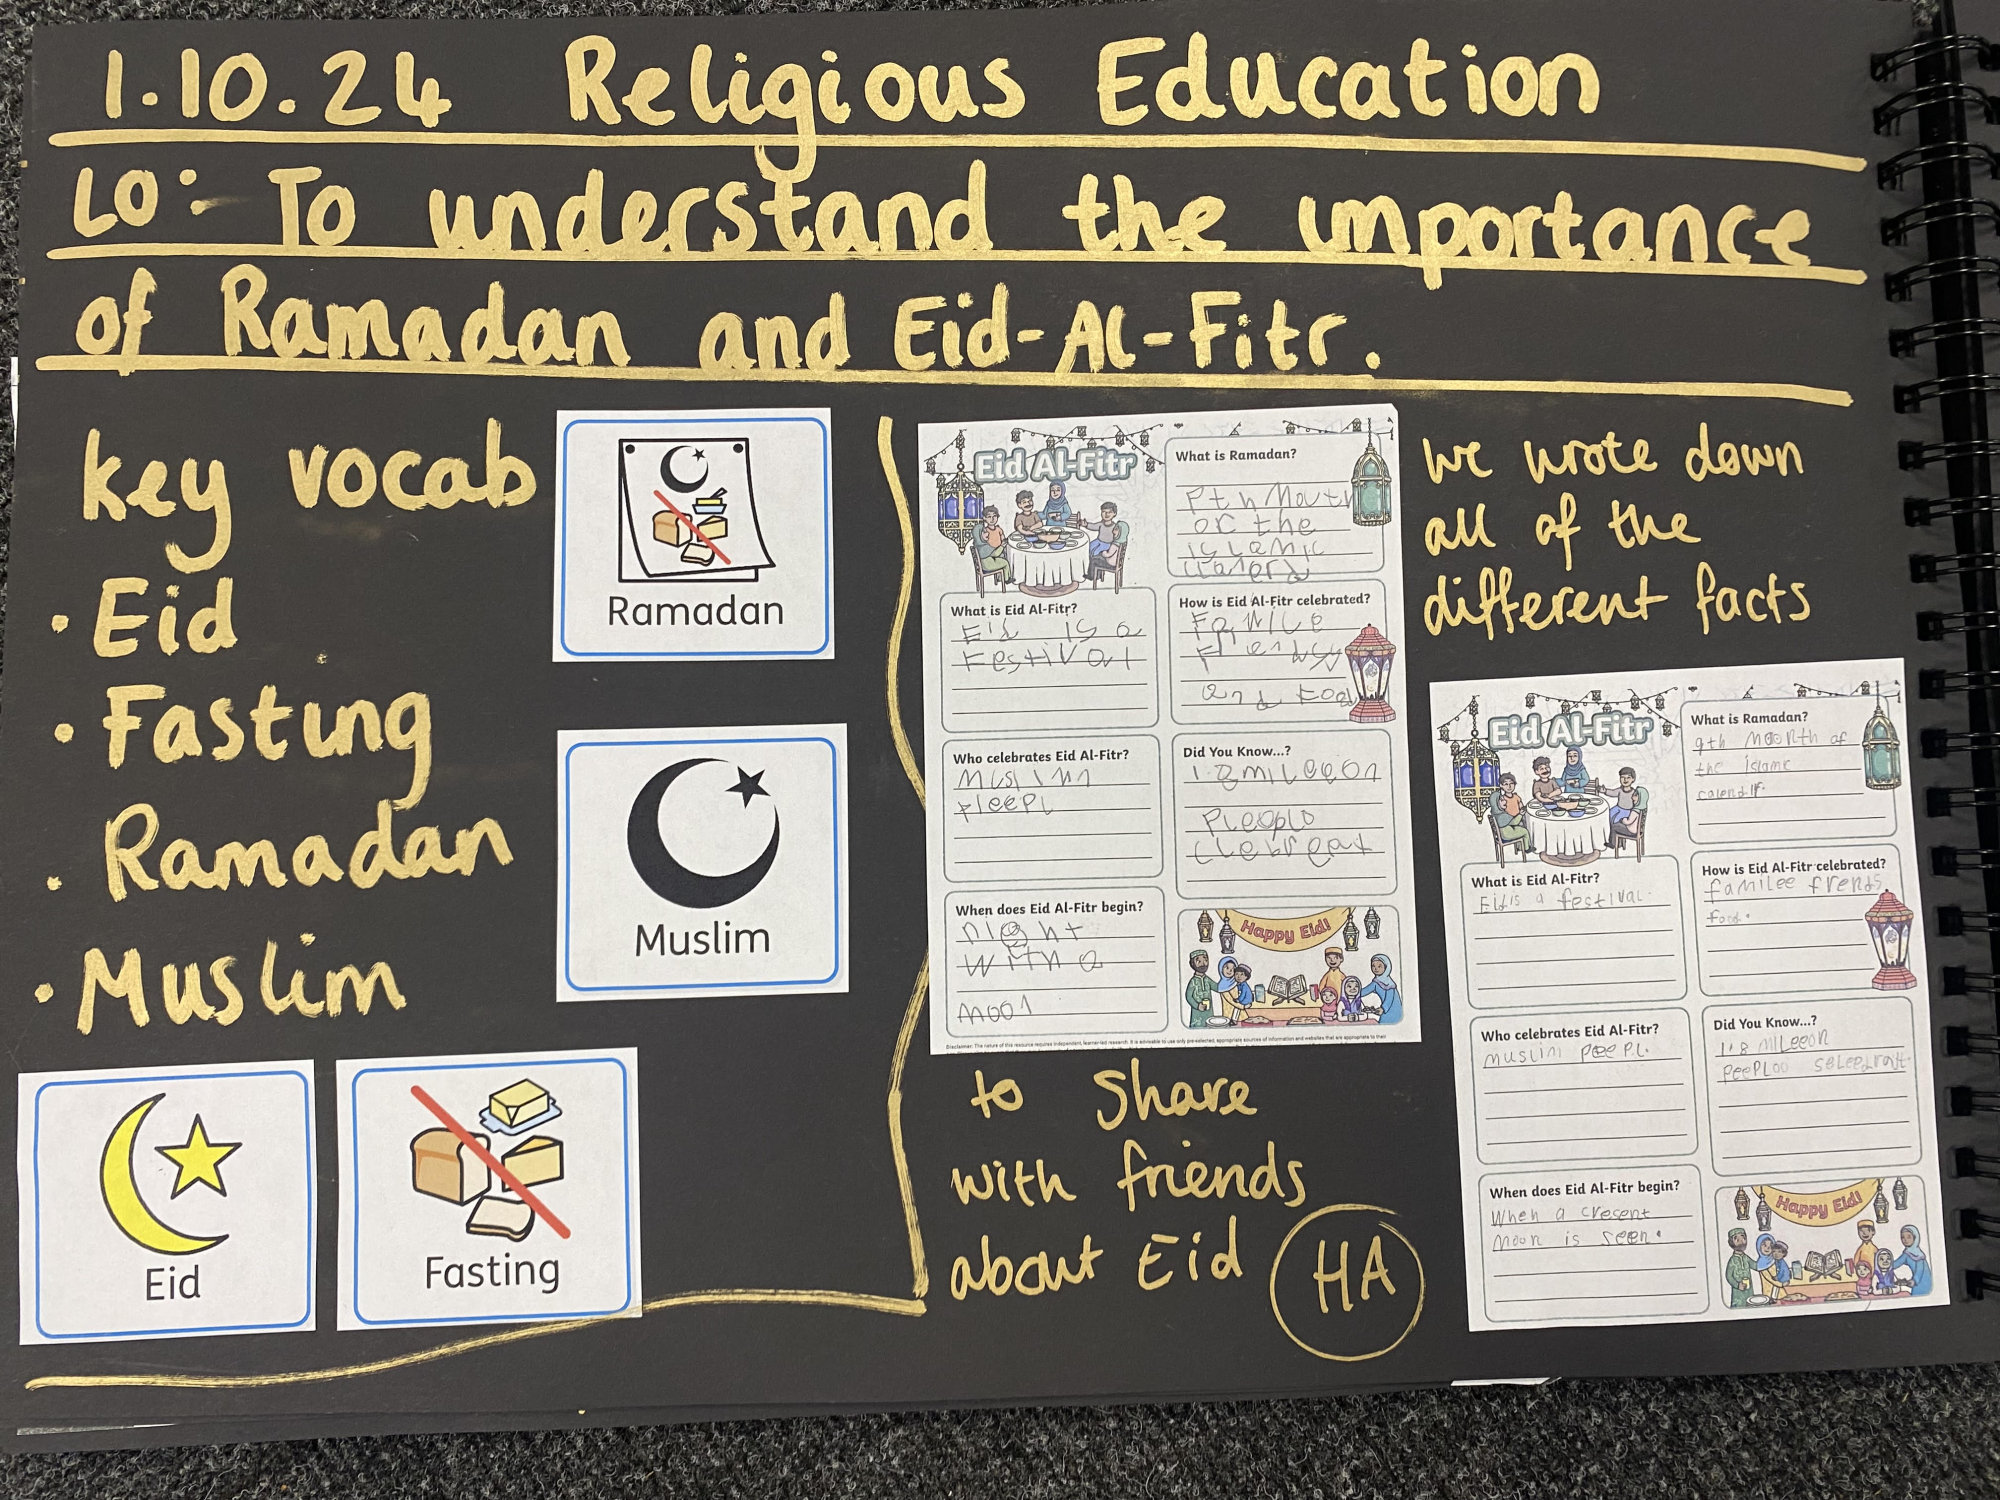 1.10.24 Religious Education
LO:- To understand the importance
of Ramadan and Eid-Al-Fitr.
key vocab
• Eid
• Fasting
• Ramadan
• Muslim
Ramadan
Muslim
Eid
Fasting
Eid Al-Fitr
What is Ramadan?
or the
islamic
What is Eid Al-Fitr?
Eid is a
Festival
How is Eid Al-Fitr celebrated?
and Food
Who celebrates Eid Al-Fitr?
Muslim
Did You Know...?
When does Eid Al-Fitr begin?
night
with a
moon
Happy Eid!
Disclaimer: The nature of this resource requires independent, learner-led research. It is advisable to use only pre-selected, appropriate sources of information and websites that are appropriate to their
we wrote down
all of the
different facts
to share
with friends
about Eid
HA
Eid Al-Fitr
What is Ramadan?
9th moonth of
the islamc
What is Eid Al-Fitr?
Eid is a festival.
How is Eid Al-Fitr celebrated?
familee frends
food.
Who celebrates Eid Al-Fitr?
muslim peepl.
Did You Know...?
1.8 mileeon
peeploo
When does Eid Al-Fitr begin?
When a cresent
moon is seen.
Happy Eid!